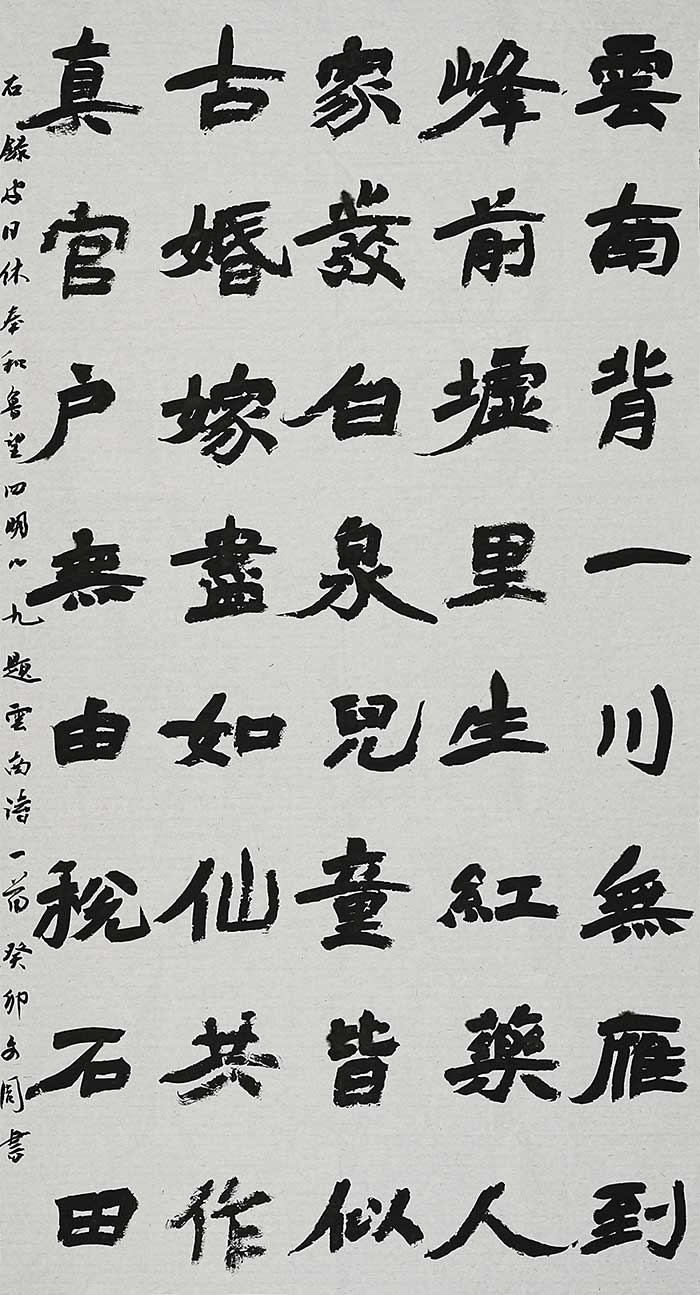 雲南背一川無雁到
峰前墟里生紅藥人
家發白泉兒童皆似
古婚嫁盡如仙共作
真官户無由稅石田
右錄皮日休奉和魯望四明山九題雲南詩一首癸卯文周書